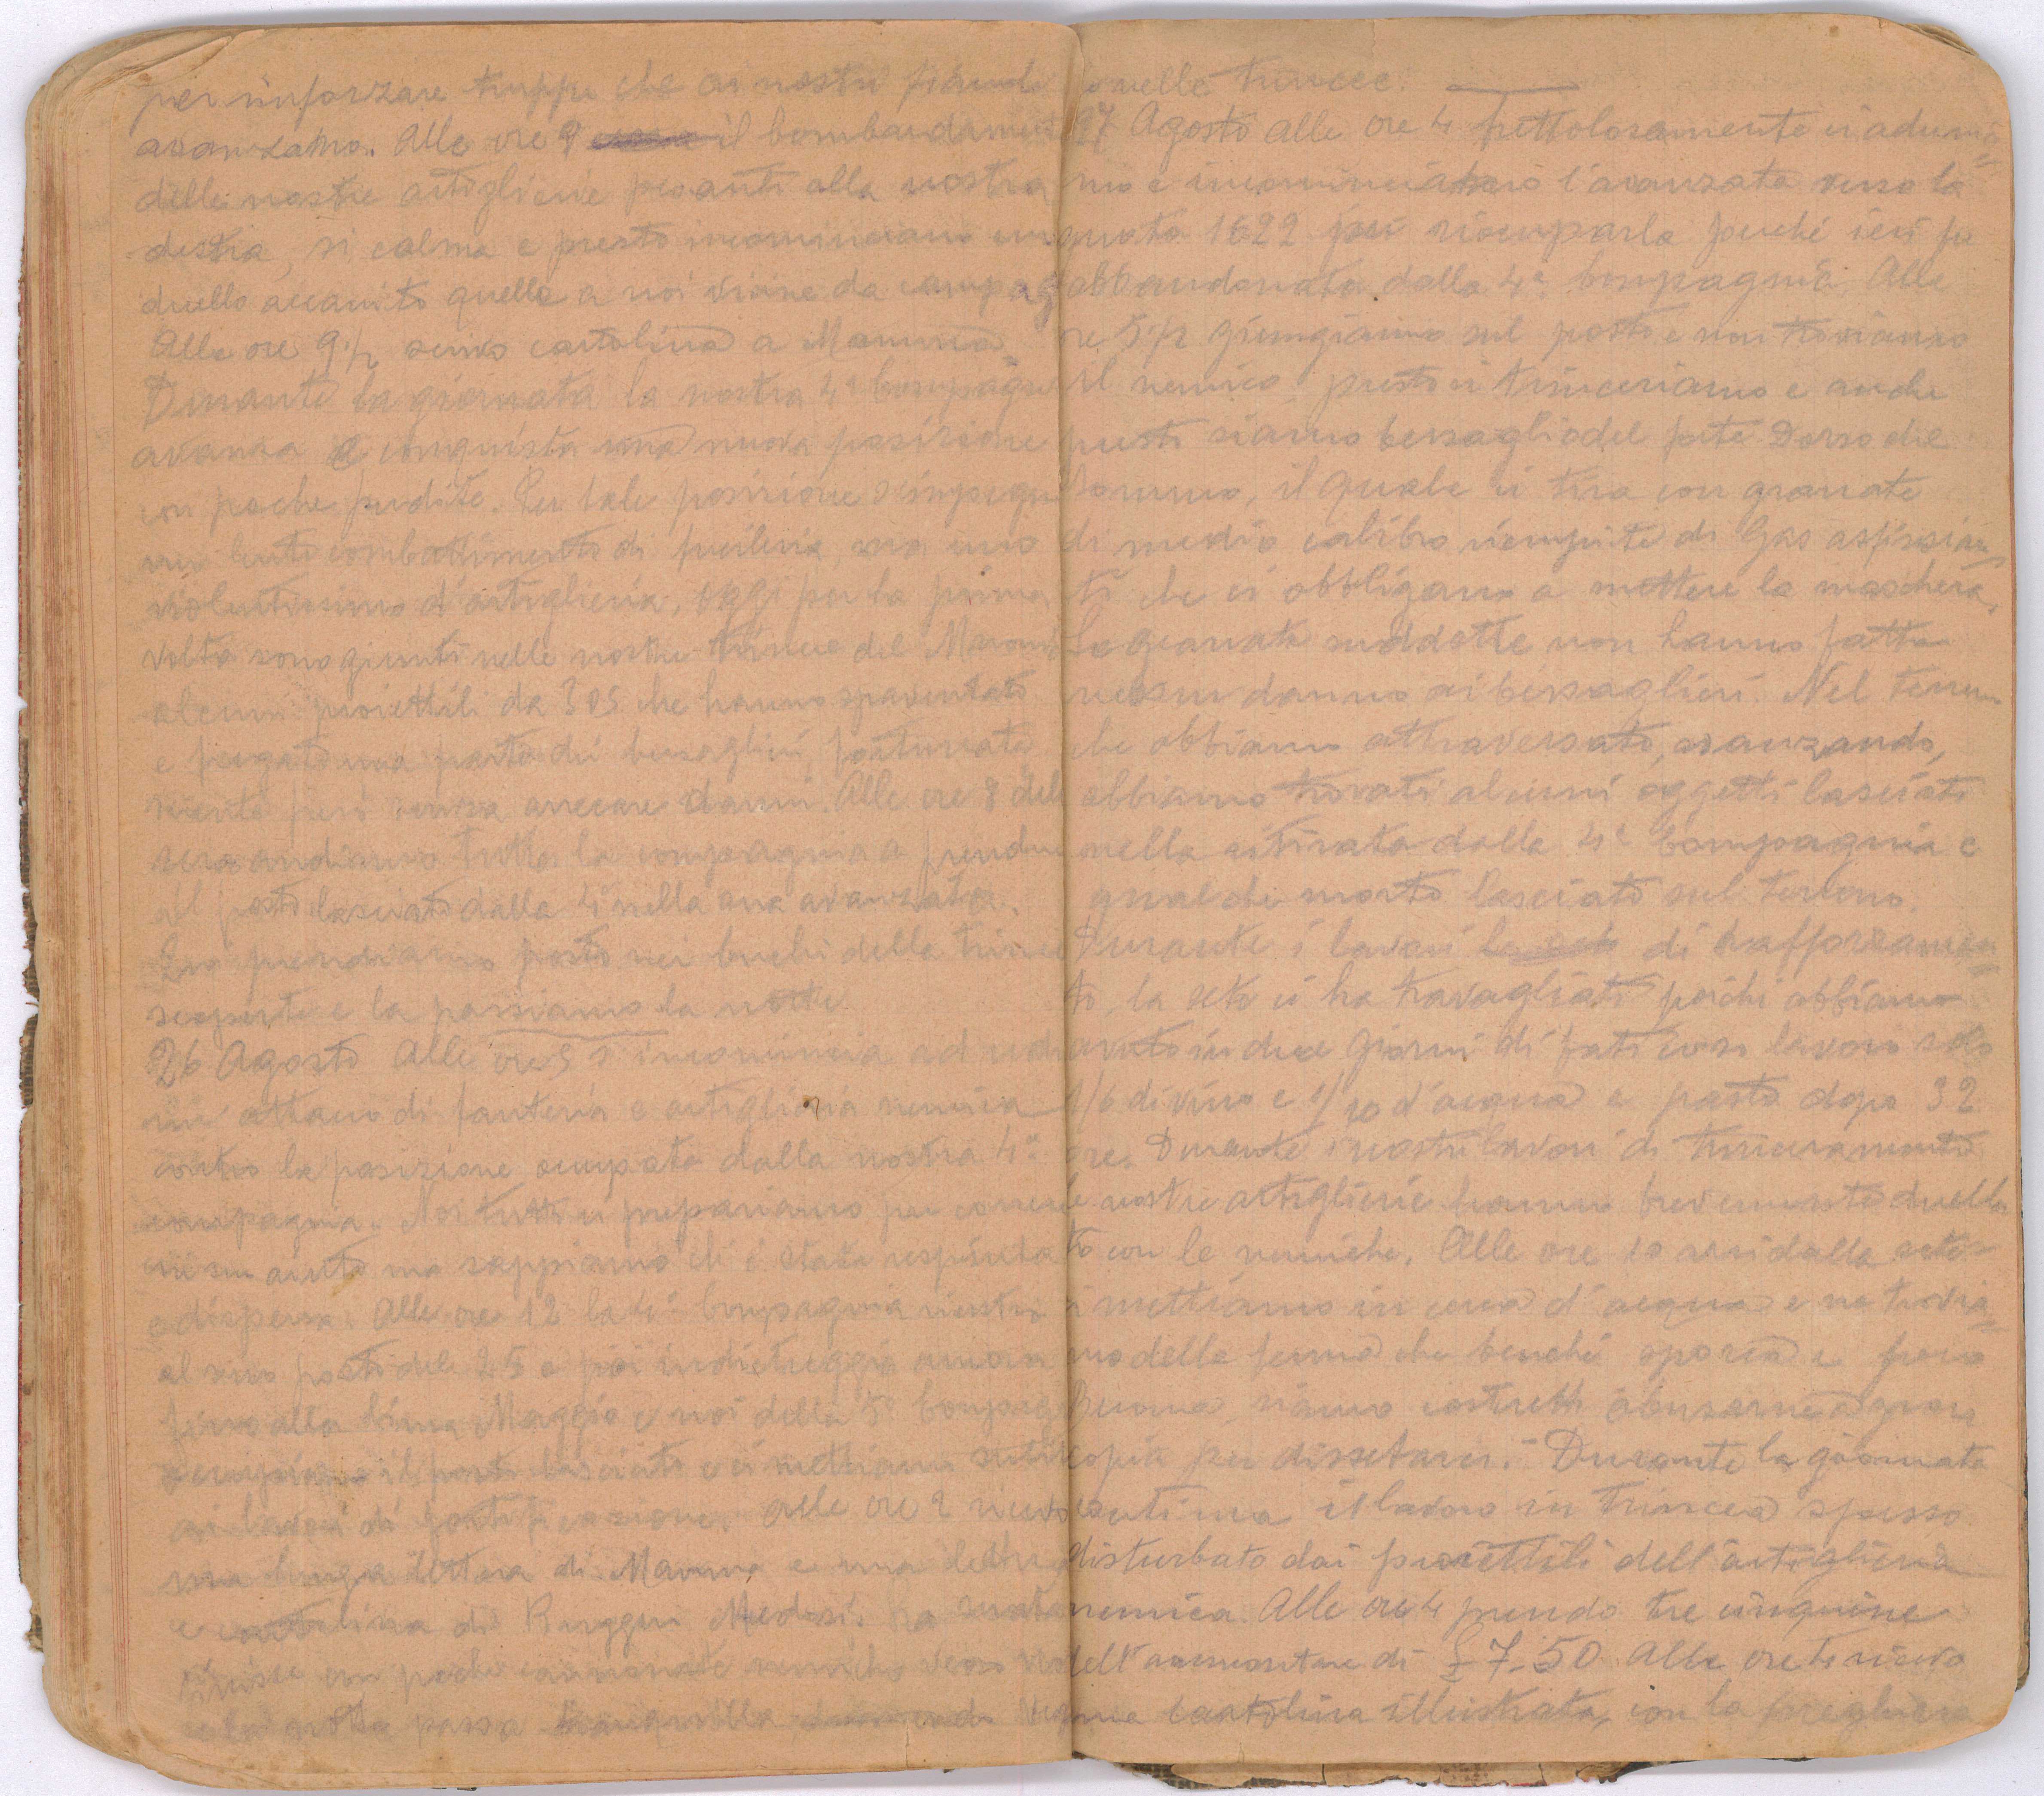 per rinforzare truppe che ai nostri fianchi
avanzano. Alle ore 9 il bombardament
delle nostre artiglierie pesanti alla nostra
destra, si calma e presto incominciano un
duello accanito quelle a noi vicine da campag
Alle ore 9½ scrivo cartolina a Mamma.
Durante la giornata la nostra 4ª Compagn
avanza e conquista una nuova posizione
con poche perdite. Per tale posizione s'impegn
un lento combattimento di fucileria, ma uno
violentissimo d'artiglieria. Oggi per la prima
volta sono giunti nelle nostre trincee del Maroni
alcuni proiettili da 305 che hanno spaventato
e fugato una parte dei bersaglieri, fortunata
mente però senza arrecare danni. Alle ore 8 dell
sera andiamo tutta la compagnia a prendere
il posto lasciato dalla 4ª nella sua avanzata.
Qui prendiamo posto nei buchi della trincea
scoperti e la passiamo la notte
26 Agosto Alle ore 5 s'incomincia ad udire
un attacco di fanteria e artiglieria nemica
contro la posizione occupata dalla nostra 4ª
compagnia. Noi tutti ci prepariamo per correre
in suo aiuto ma sappiamo che è stata respinta
e dispersa. Alle ore 12 la 4ª Compagnia rientra
al suo posto del 25 e poi indietreggia ancora
fino alla linea Maggio e noi della 5ª Compag
occupiamo il posto lasciato e ci mettiamo subito
ai lavori di fortificazione. Alle ore 2 ricevo
una lunga lettera di Mamma e una lettera
e cartolina di Ruggeri Medesi. La serata
finisce con poche cannonate nemiche verso
e la notte passa tranquilla
nelle trincee.
27 Agosto Alle ore 4 frettolosamente ci aduniã
mo e incominciamo l'avanzata verso la
quota 1622 per rioccuparla perché ieri fu
abbandonata dalla 4ª Compagnia. Alle
ore 5½ giungiamo sul posto e non troviamo
il nemico, presto ci trinceriamo e anche
questi siamo bersaglio del forte Dosso del
Sommo, il quale ci tira con granate
di medio calibro riempite di Gas asfissian=
ti che ci obbligano a mettere la maschera.
Le granate suddette non hanno fatto
nessun danno ai bersaglieri. Nel terreno
che abbiamo attraversato, avanzando,
abbiamo trovati alcuni oggetti lasciati
nella ritirata dalla 4ª Compagnia e
qualche morto lasciato sul terreno.
Durante i lavori di rafforzamen=
to, la sete ci ha travagliati poiché abbiamo
avuto in due giorni di faticoso lavoro solo
1/6 di vino e 1/10 d'acqua e pasto dopo 32
ore. Durante i nostri lavori di trinceramento
le nostre artiglierie hanno brevemente duella
to con le nemiche. Alle ore 10 arsi dalla sete
ci mettiamo in cerca d'acqua e ne trovia=
mo della ferma che benché sporca e poco
buona, siamo costretti abusarne a gran
copia per dissetarci. Durante la giornata
continua il lavoro in trincea spesso
disturbato dai proiettili dell'artiglieria
nemica. Alle ore 4 prendo tre cinquine
dell'ammontare di £ 7.50. Alle ore 6 ricevo
una cartolina illustrata, con la preghiera